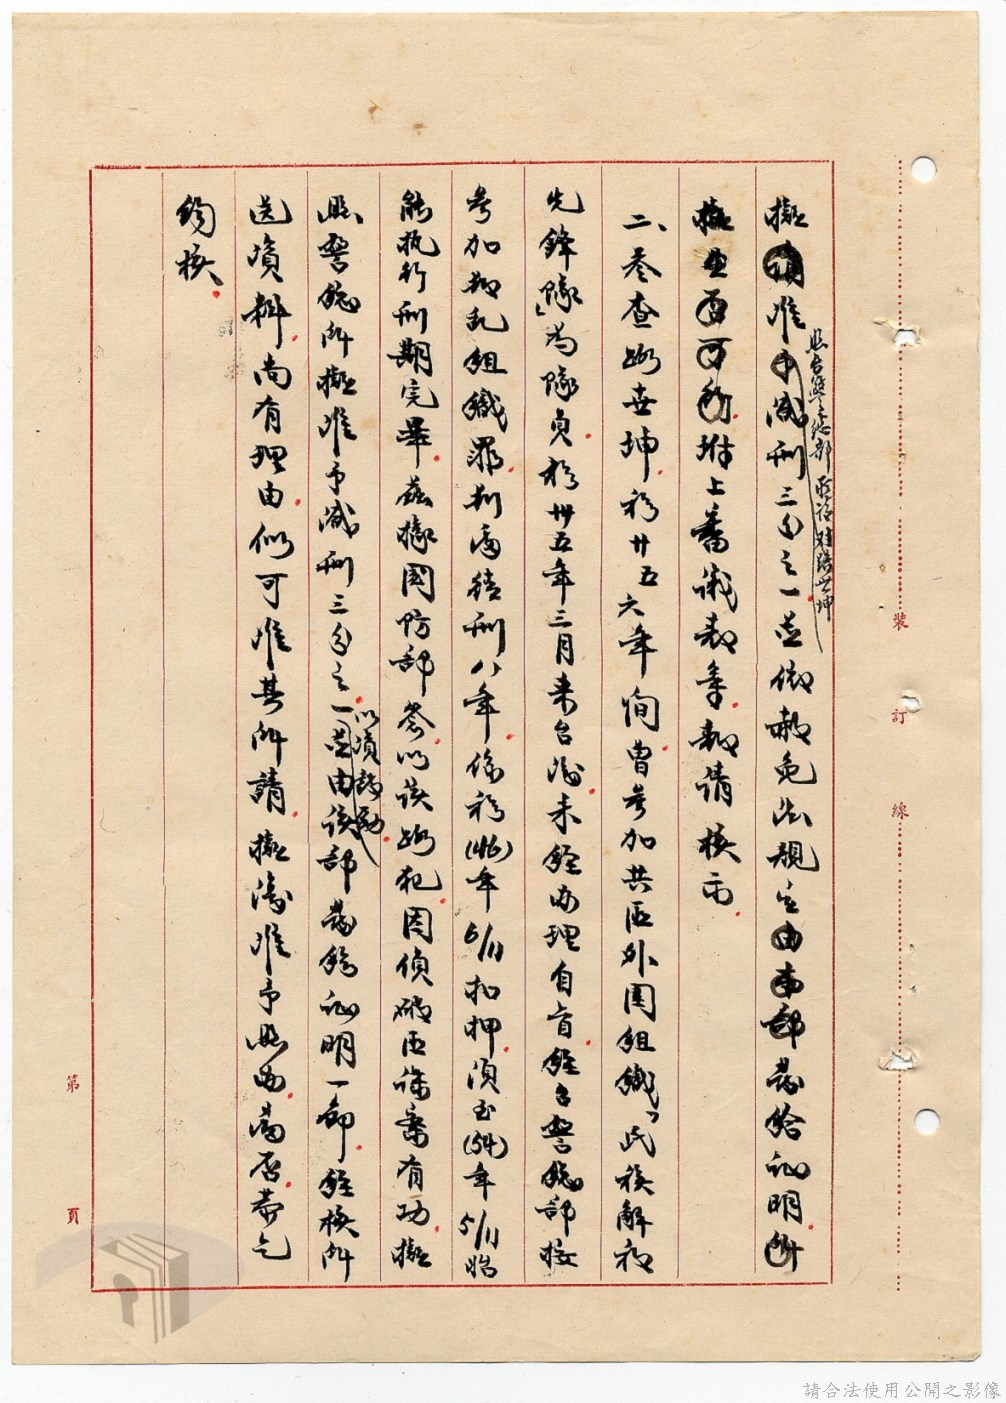 擬准予減刑三分之一並依赦免法規定由部發給證明
照台警總部所請對路世坤
附上簽議表等敬請核示
二、叁查路世坤於廿五六年間曾參加共匪外圍組織「民族解放
先鋒隊」為隊員於卅五年三月來台後未經辦理自首經台警總部按
參加叛亂組織罪判處徒刑八年係於(46)年5/11扣押須至(54)年5/11始
能執行刑期完畢茲據國防部簽以該路犯因偵破匪諜案有功擬
照警總所擬准予減刑三分之一並由該部發給證明一節經核所
以資鼓勵
送資料尚有理由似可准其所請擬復准予照辦當否恭乞
鈞核
裝
訂
線
第
頁
請合法使用公開之影像